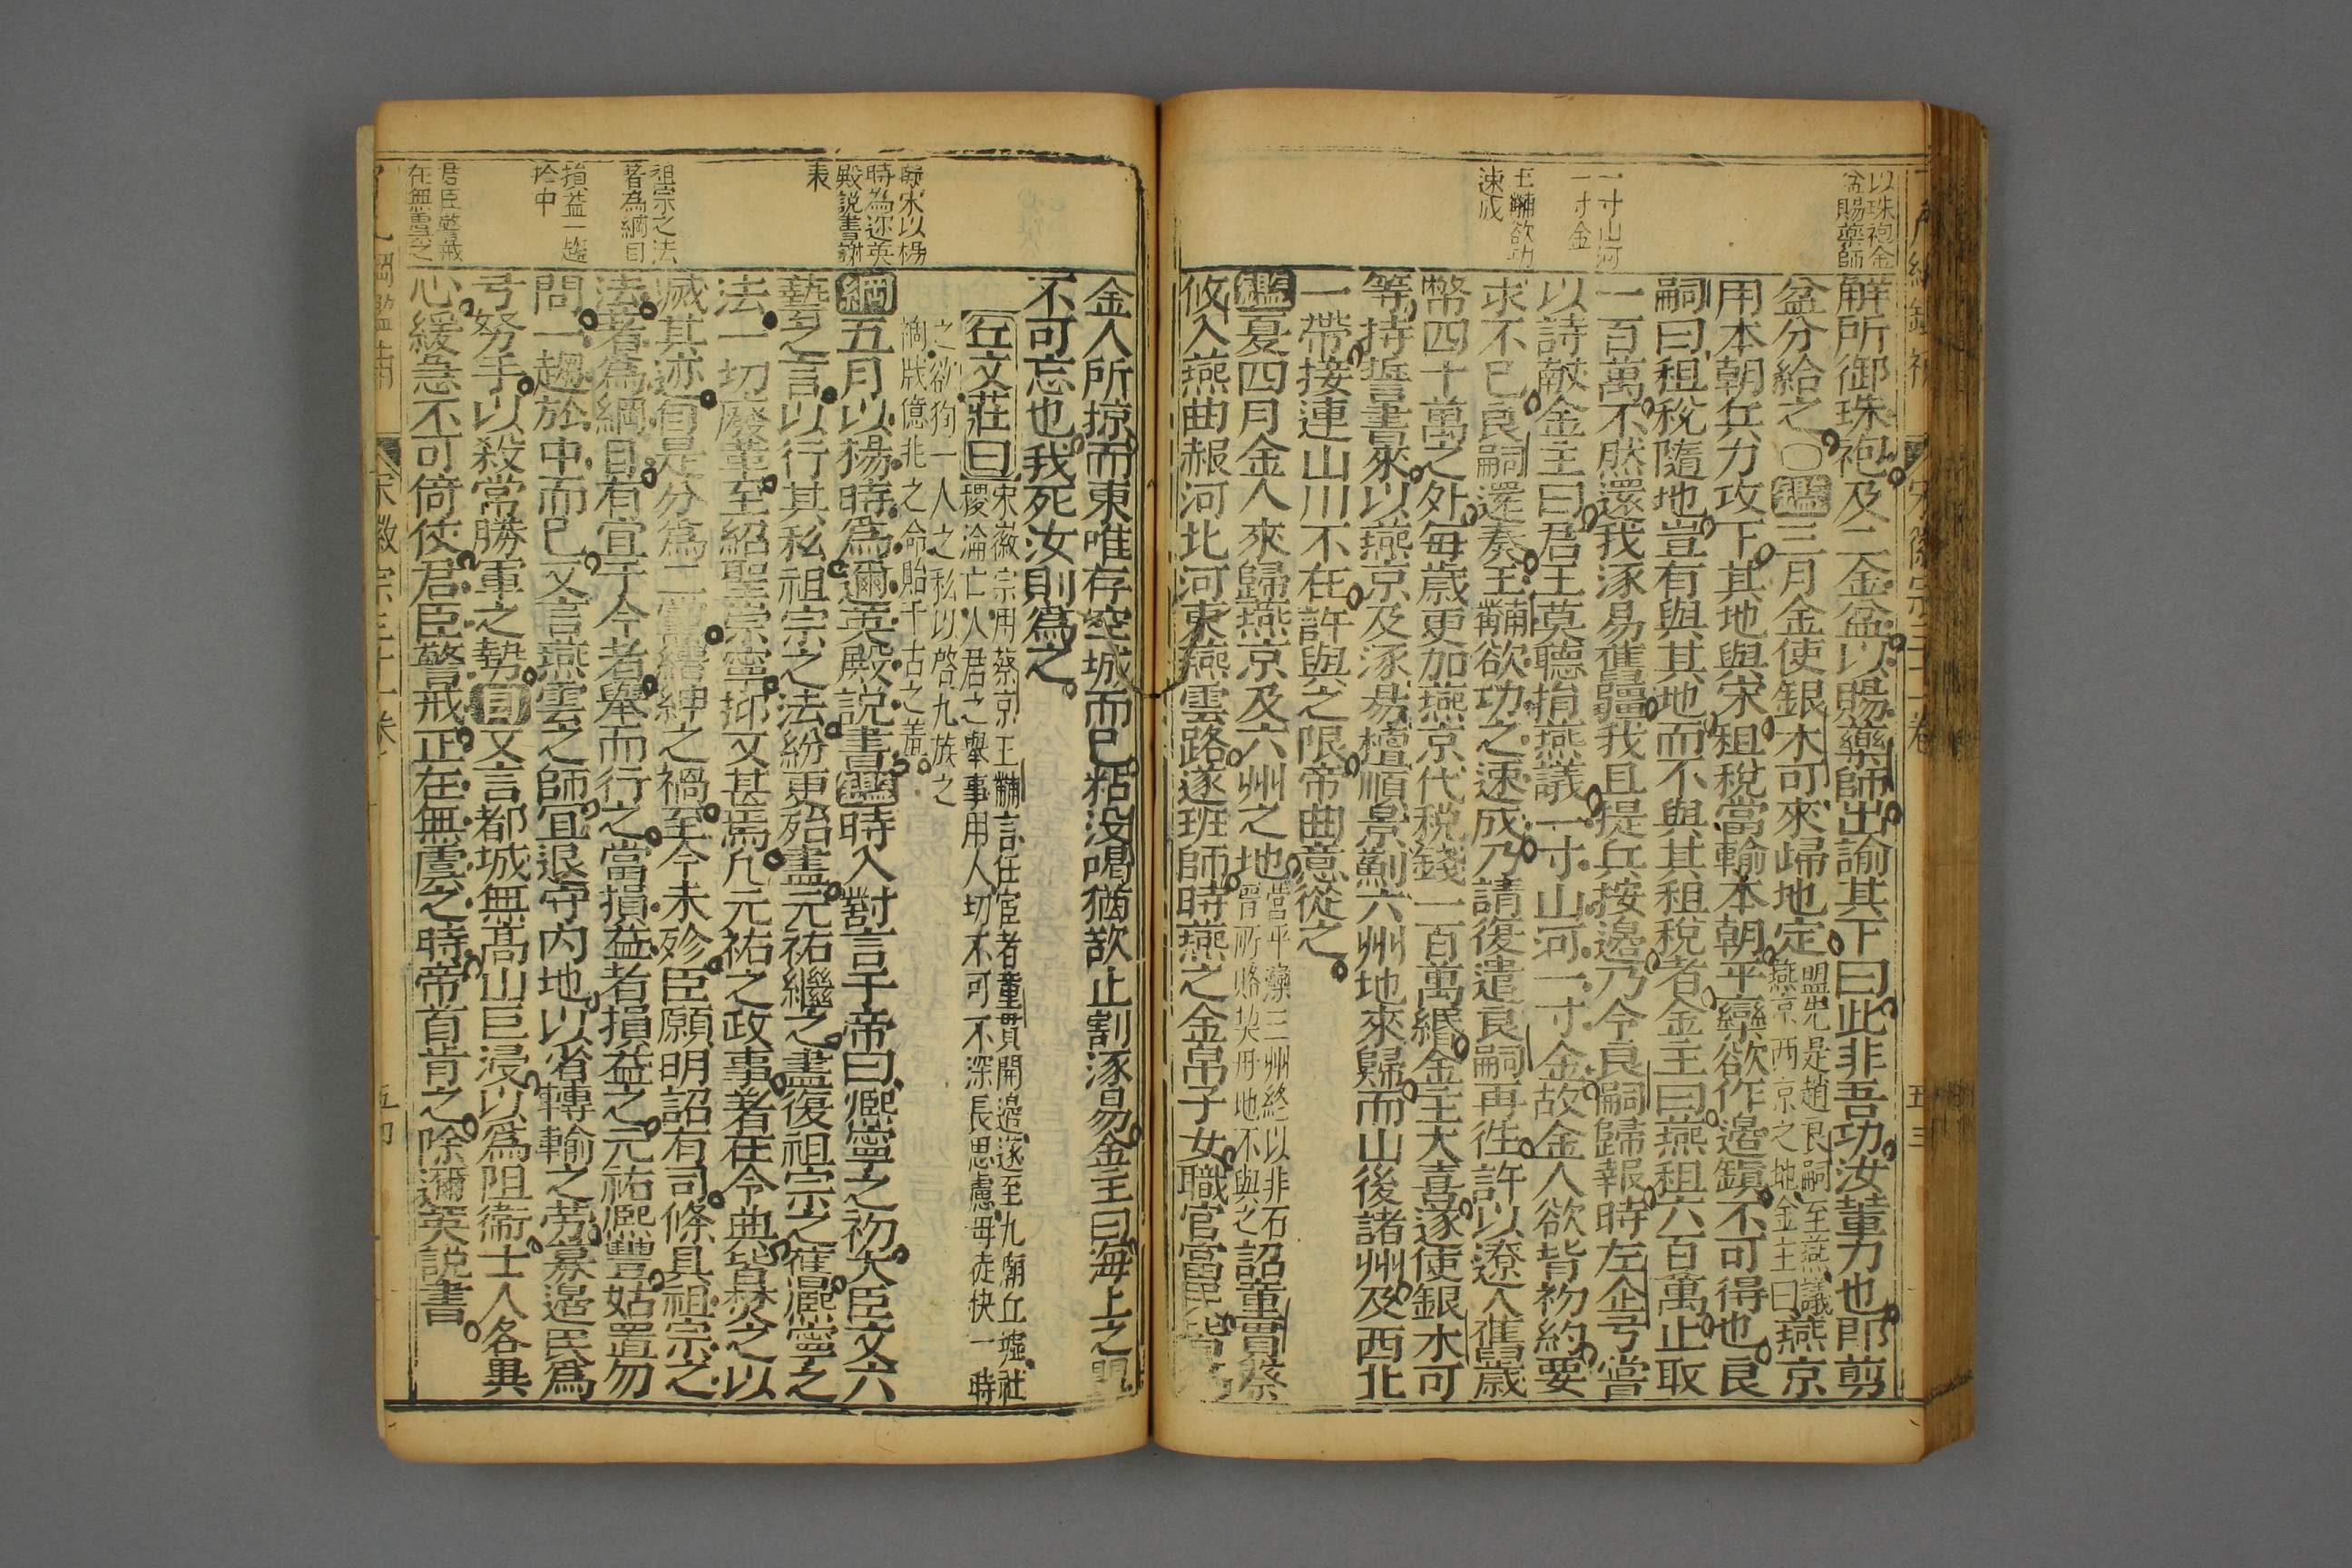 以珠袍金
盆賜藥師
一寸山河
一寸金
王黼欲功
速成
解所御珠袍及二金盆以賜藥師出諭其下曰此非吾功汝輩力也即剪
盆分給之〇鑑三月金使銀木可來歸地定
盟先是趙良嗣至燕議
燕京西京之地金主曰
燕京
用本朝兵力攻下其地與宋租稅當輸本朝平欒欲作邉鎮不可得也良
嗣曰租稅隨地豈有與其地而不與其租稅者金主曰燕租六百萬止取
一百萬不然還我涿易舊疆我且提兵按邉乃令良嗣歸報時左企弓嘗
以詩獻金主曰君王莫聽捐燕議一寸山河一寸金故金人欲皆初約要
求不已良嗣還奏王黼欲功之速成乃請復遣良嗣再徃許以遼人舊歲
幣四十萬之外每歲更加燕京代税錢一百萬緡金主大喜遂使銀木可
等持誓書來以燕京及涿易檀順景薊六州地來歸而山後諸州及西北
一帶接連山川不在許與之限帝曲意從之
鑑夏四月金人來歸燕京及六州之地
營平灤三州終以非石
晉所賂契丹地不與之
詔童貫蔡
攸入燕曲赧河北河東燕雲路遂班師時燕之金帛子女職官富民皆爲
宋徽宗三十一卷
五三
聯宋以楊
時為迩英
殿說書謝
表
祖宗之法
著為綱目
損益一趨
扵中
君臣警戒
在無虞之
金人所掠而東唯存空城而已粘没喝猶欲止割涿易金主曰海上之盟
不可忘也我死汝則爲之
丘文莊曰
宋徽宗用蔡京王黼言任宦者童貫開邉遂至九廟丘墟社
稷淪亡人君之舉事用人切不可不深長思慮毋徒快一時
之欲狥一人之私以啓九族之
禍戕億兆之命貽千古之羞
綱五月以楊時爲邇英殿説書鑑時入對言于帝曰熈寧之初大臣文六
藝之言以行其私祖宗之法紛更殆盡元祐繼之盡復祖宗之舊熈寧之
法一切廢革至紹聖崇寧抑又甚焉凡元祐之政事者在令典皆焚之以
滅其迹自是分爲二黨縉紳之禍至今未殄臣願明詔有司條具祖宗之
法著爲綱目有宜于今者舉而行之當損益者損益之元祐熈豐姑置勿
問一趨於中而已又言燕雲之師宜退守内地以省轉輸之劳募邉民爲
弓努手以殺常勝軍之勢目又言都城無髙山巨浸以爲阻衞士人各異
心緩急不可倚仗君臣警戒正在無虞之時帝首肯之除邇英説書
宋徽宗三十一卷